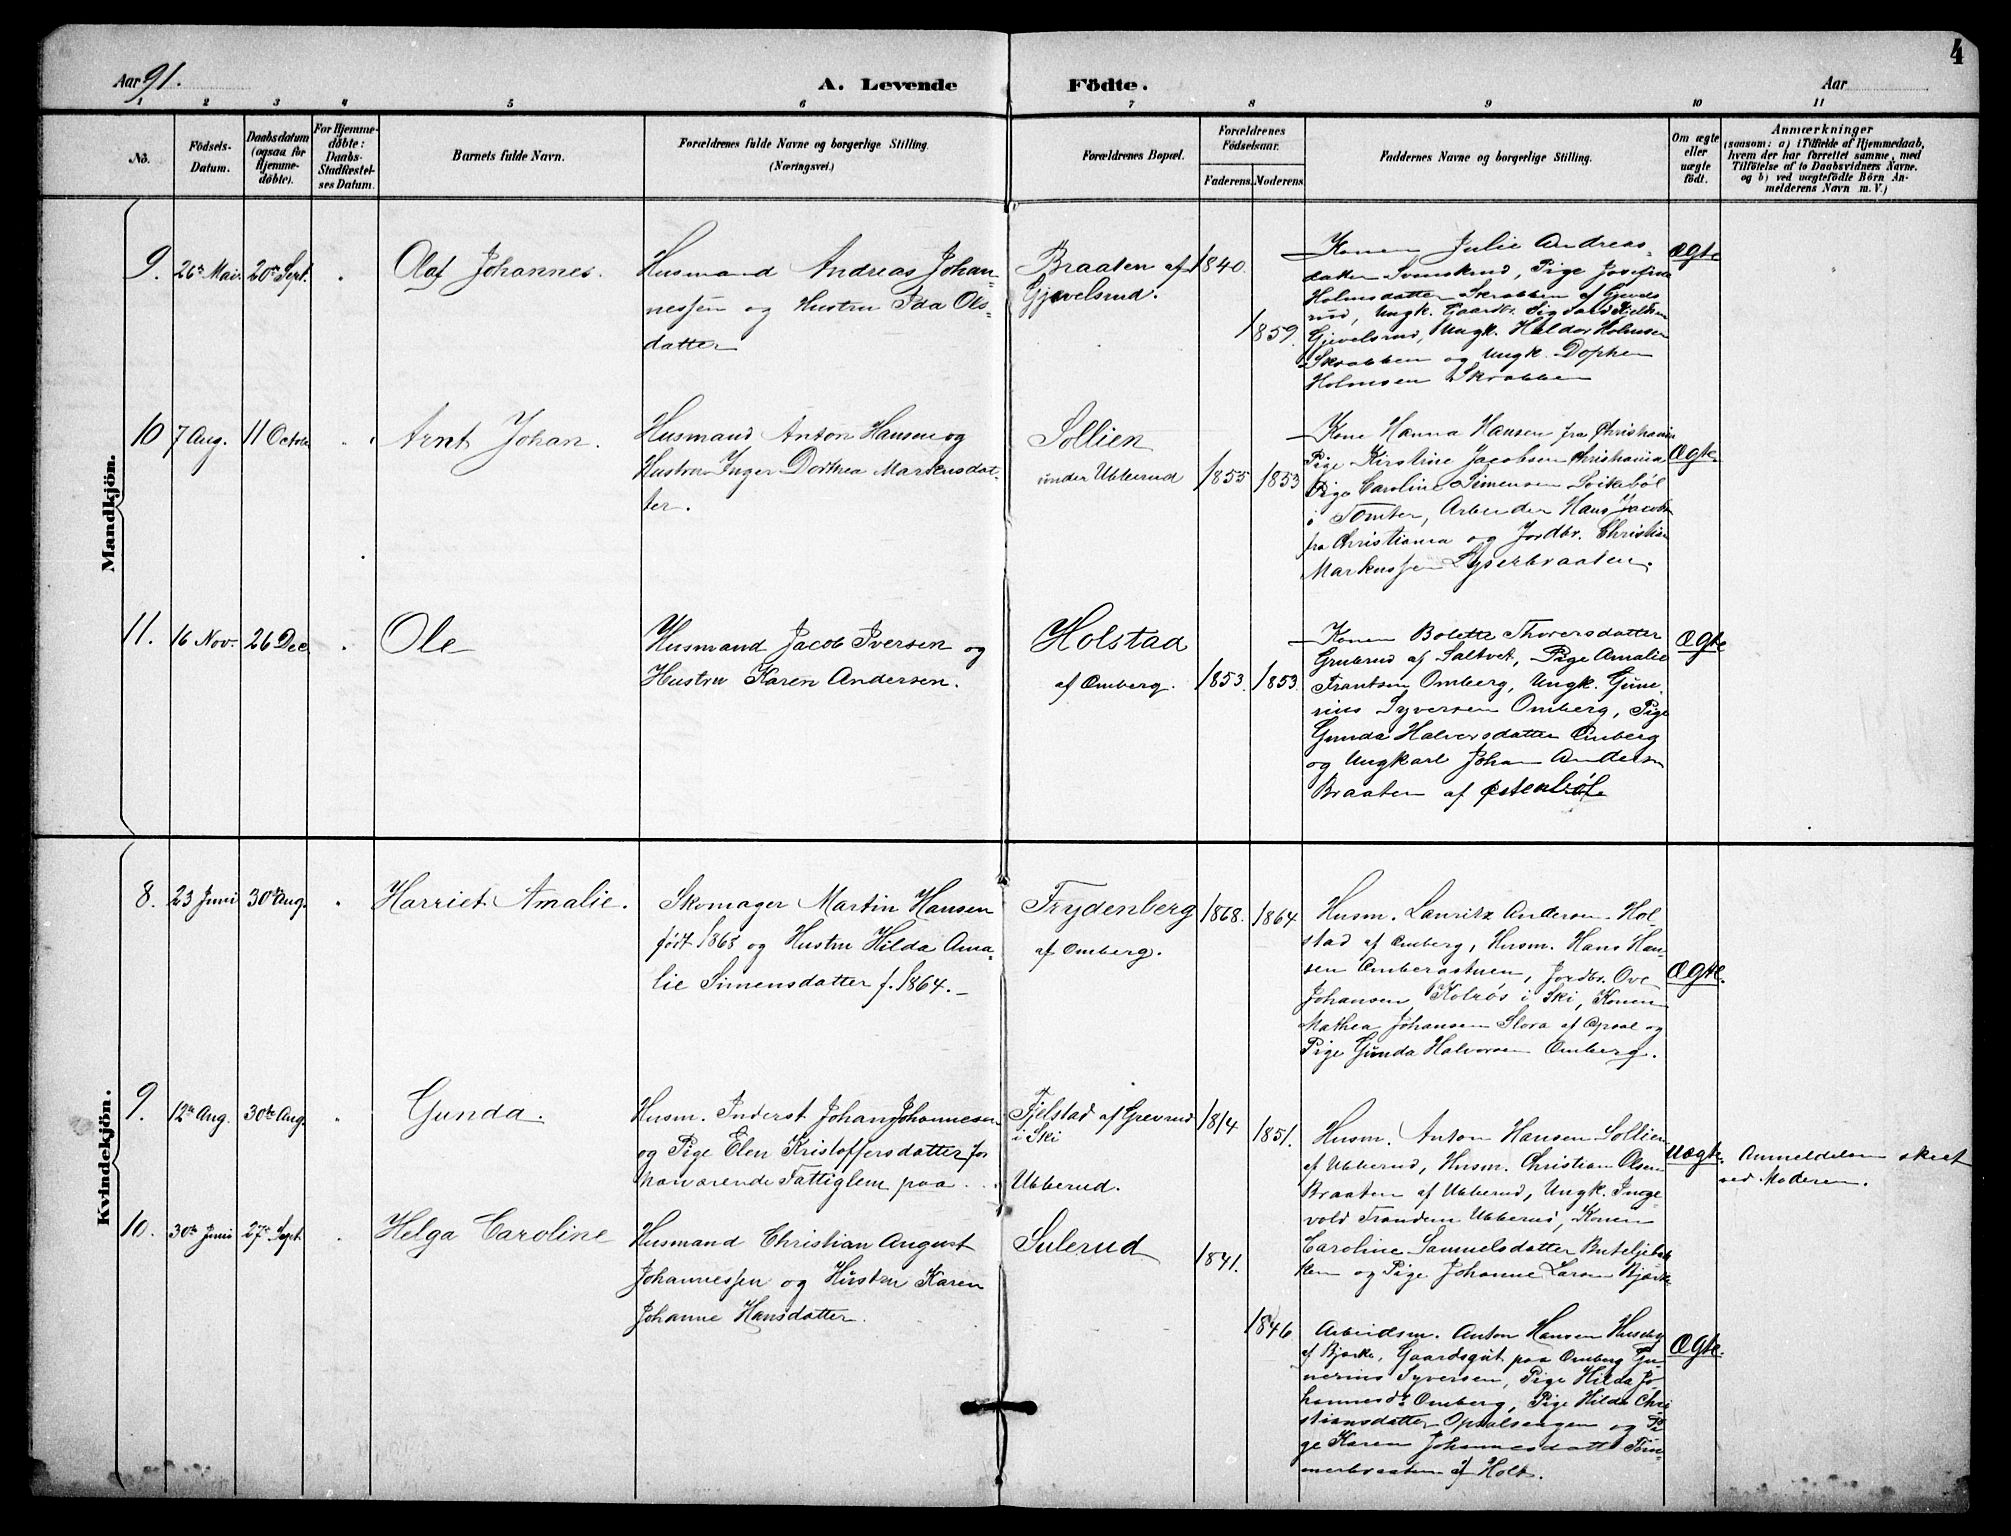 4
Aar 91.
A. Levende Födte.
Aar
1 2 3 4 5 6 7 8 9 10 11
No.
Födsels-
Datum.
Daabsdatum
(ogsaa for
Hjemme-
döbte).
For Hjemme-
döbte:
Daabs-
Stadfæstel-
ses Datum.
Barnets fulde Navn.
Forældrenes fulde Navne og borgerlige Stilling.
(Næringsvei.)
Forældrenes Bopæl.
Forældrenes
Födselsaar.
Faderens. Moderens.
Faddernes Navne og borgerlige Stilling.
Om ægte
eller
uægte
födt.
Anmærkninger
(saasom: a) i Tilfælde af Hjemmedaab,
hvem der har forrettet samme, med
Tilföielse af to Daabsvidners Navne.
og b) ved uægtefödte Börn An-
melderens Navn m. V.)
Mandkjön.
9. 26de Mai. 20de Sept.
Olaf Johannes.
Husmand Andreas Johan-
nessen og Hustru Ida Ols-
datter
Braaten af
Gjevelsrud.
1840.
1859.
Konen Julie Andreas-
datter Svenskrud, Pige Josefine
Holmsdatter Skrabben af Gjevels
rud, Ungk.
Gjevelsrud, Ungk. Haldor Holmsen
Skrabben og Ungk.
Holmsen Skrabben
ægte
10 7 Aug. 11 Octobr
Arnt Johan.
Husmand Anton Hansen og
Hustru Inger Dorthea Markusdat-
ter.
Sollien
under Ubberud
1855 1853
Kone Hanna Hansen fra Christiania
Pige Kirstine Jacobsen Christiania
Pige Caroline Simensen
i Tomter, Arbeider Hans Jacobs
fra Christiania og Jordbr. Christian
Markussen Lyserbraaten.
Ægte.
11. 16 Nov. 26 Dec
Ole
Husmand Jacob Iversen og
Hustru Karen Andersen.
Holstad
af Omberg.
1853. 1853.
Konen Bolette Thorersdatter
Grubrud af Saltvet, Pige Amalie
Frantsen Omberg, Ungk. Gune-
rius Syversen Omberg, Pige
Gunda Halversdatter Omberg
og Ungkarl Johan Andersen
Braaten af Østenbøl
Ægte
Kvindekjön.
8. 23 Juni 30te Aug.
Harriet Amalie.
Skomager Martin Hansen
født 1868 og Hustru Hilda Ama-
lie Simensdatter f. 1864. –
Frydenberg
af Omberg.
1868. 1864
Husm. Lauritz Andersen Hol-
stad af Omberg, Husm. Hans Han-
sen Ombergstuen, Jordbr. Ove
Johansen Kolrös i Ski, Konen
Mathea Johansen Slora af Opsal og
Pige Gunda Halvorsen Omberg.
Ægte.
9. 12te Aug. 30te Aug.
Gunda.
Husm. Inderst Johan Johannesen
og Pige Elen Kristoffersdatter for
nærværende Fattiglem paa . .
Fjelstad af Grevrud
i Ski
Ubberud.
1814 1851.
Husm. Anton Hansen Sollien
af Ubberud, Husm. Christian Olsen
Braaten af Ubberud, Ungk. Inge-
vold Frandsen Ubberud, Konen
Caroline Samuelsdatter Buteljebak-
ken og Pige Johanne Larsen Bjærke
Uægte.
Anmeldelsen skeet
ved Moderen.
10. 30te Juni 27de Sept.
Helga Caroline
Husmand Christian August
Johannessen og Hustru Karen
Johanne Hansdatter.
Sulerud
1841.
1846
Arbeidsm. Anton Hansen Huseby
af Bjærke, Gaardsgut paa Omberg Gu-
nerius Syversen, Pige Hilda Jo-
hannesdr Omberg, Pige Hilda Chri
stiansdatter Opsalsengen og Pi
ge Karen Johannesdatter Töm-
merbraaten af Holt.
Ægte.